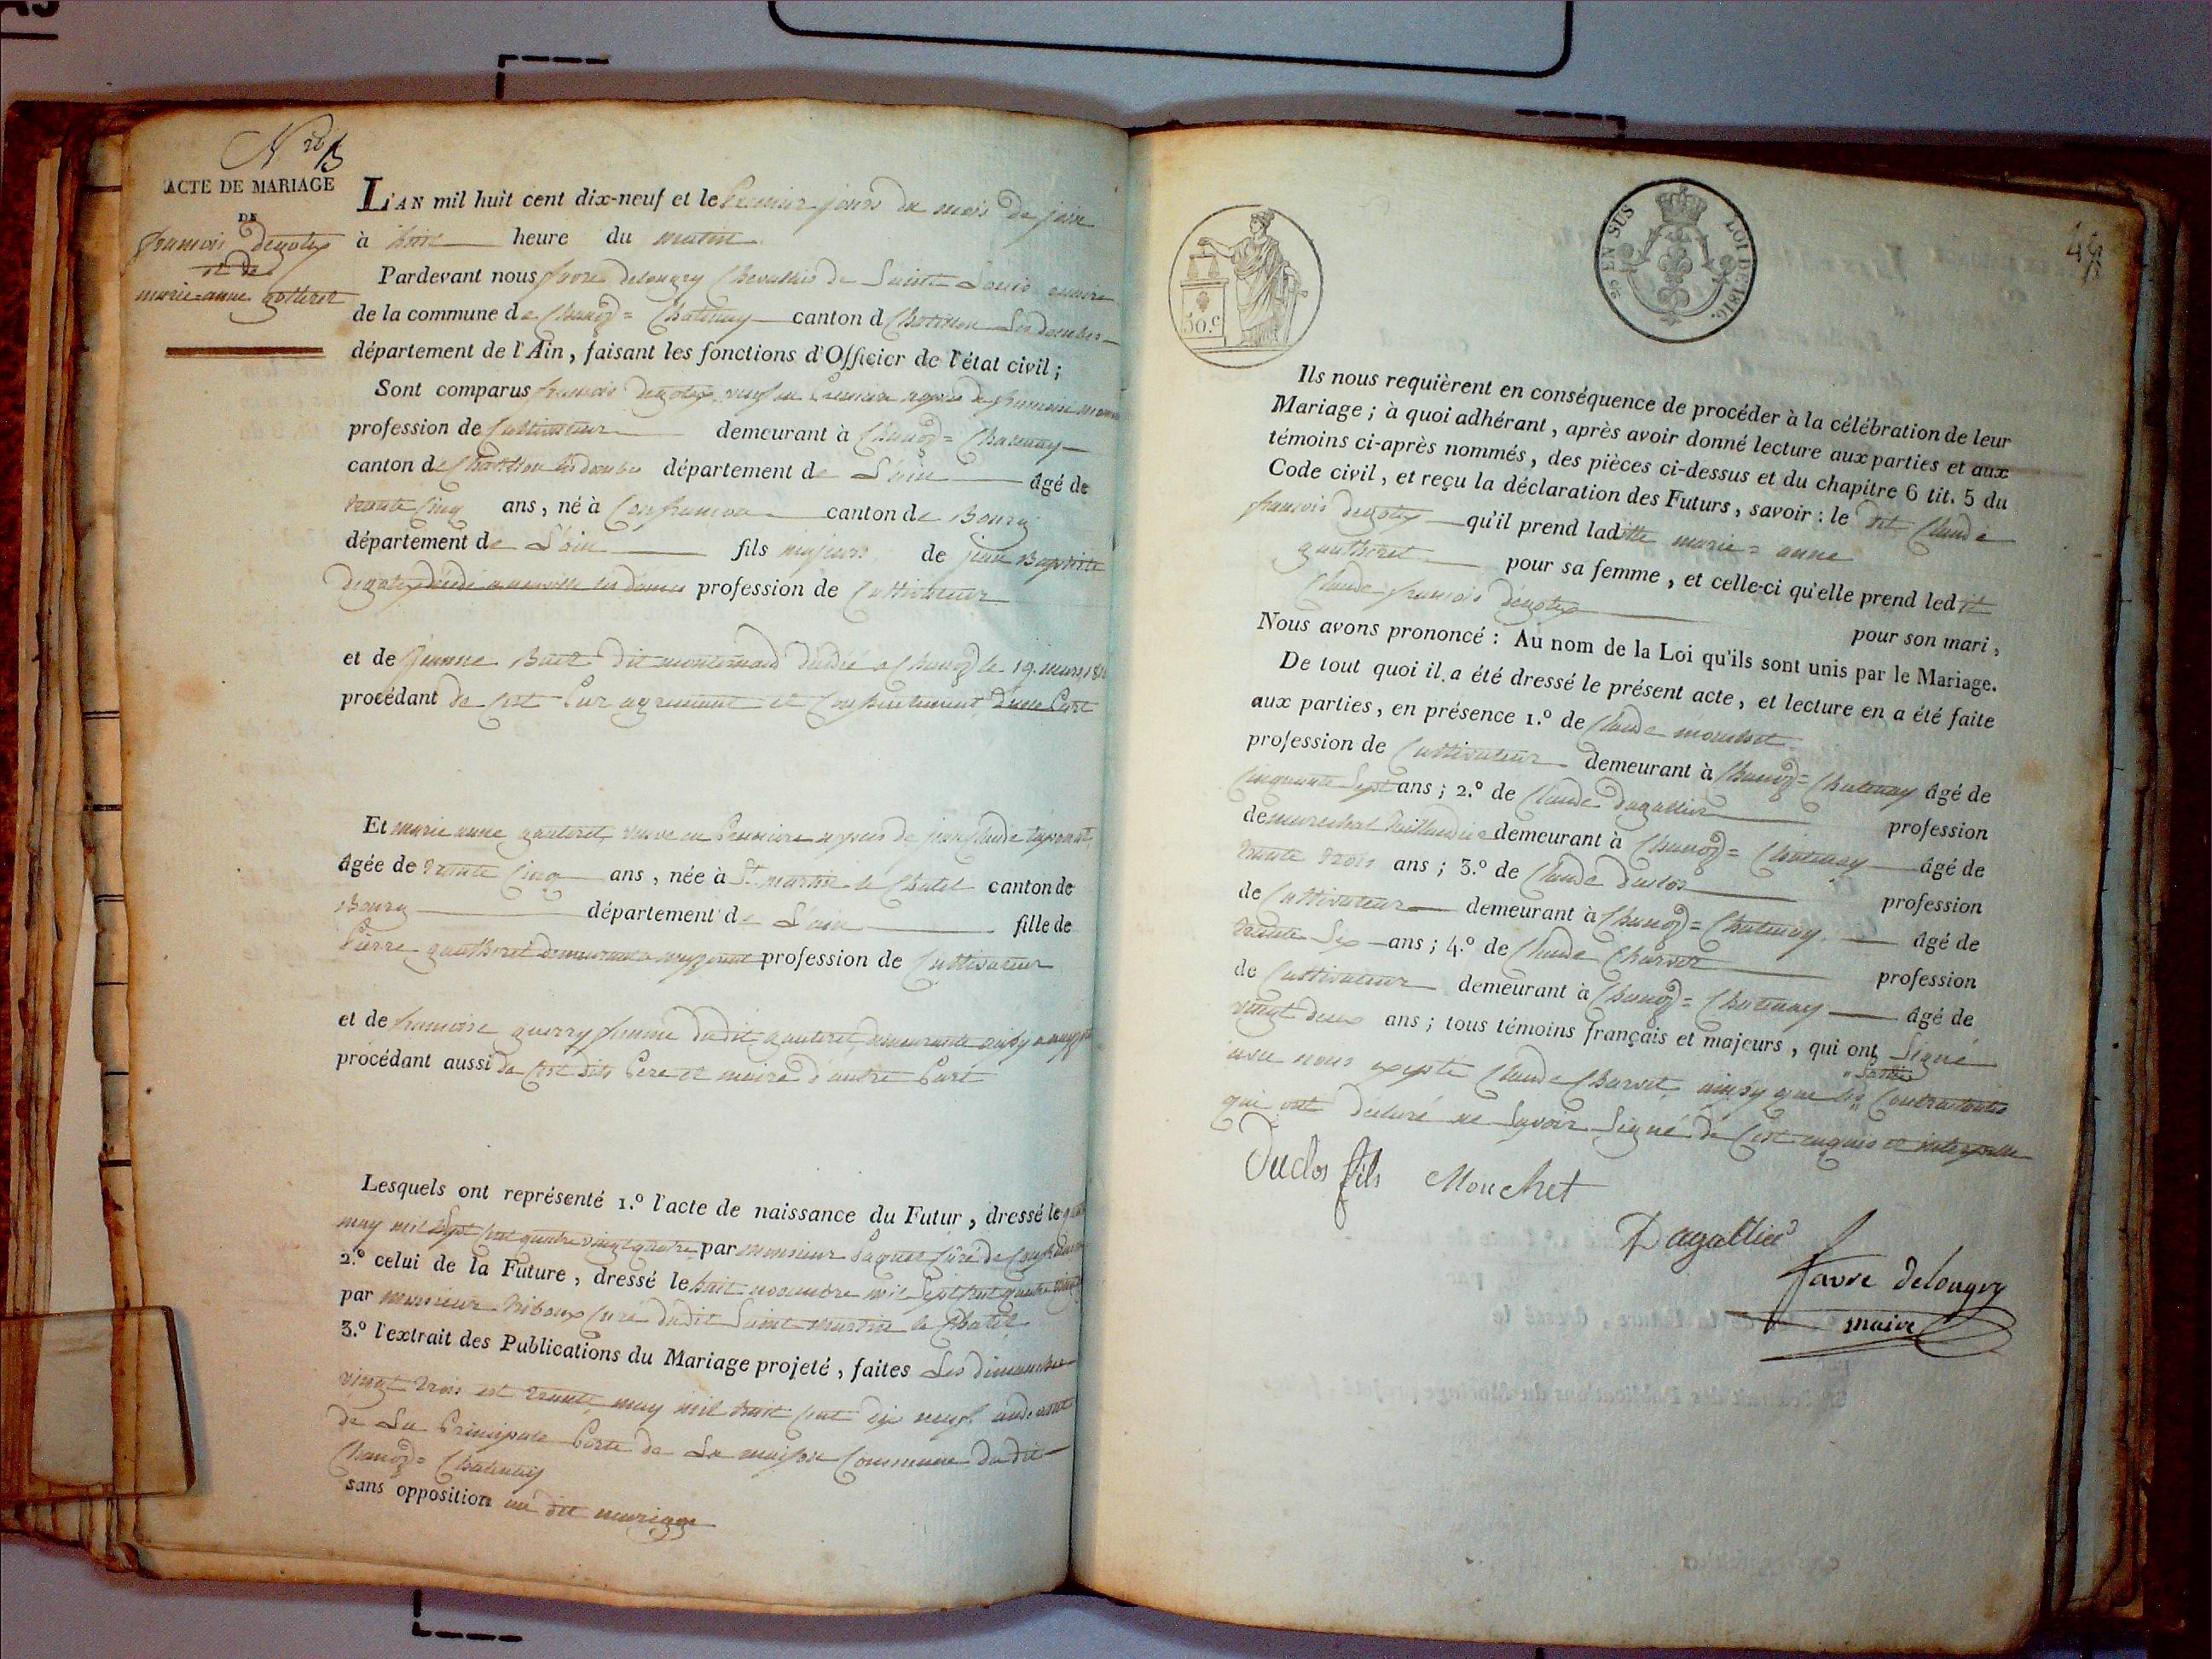 ACTE DE MARIAGE
DE
françois degotex
et de
marie anne gotteret
L'AN mil huit cent dix-neuf et le Premier jours du mois de juin
à huit heure du matin
Pardevant nous favre delongry Chevallier de Sainte Louis maire
de la commune de Chanoz = Chatenay canton d Chatillon Les dombes
département de l'Ain, faisant les fonctions d'Officier de l'état civil ;
Sont comparus françois degotex veuf en Premiere nopces de francoise
profession de Cultivateur demeurant à Chanoz = Chatenay
canton de Chatillon les dombes département de L'ain âgé de
trante Cinq ans, né à Confrancon canton de Bourg
département de L'ain fils majeurs de jean Baptiste
degotex décédé a neuville les dames profession de Cultivateur
et de jeanne Buet dit monternaud décédée a Chanoz le 19. mars
procédant de Cest Pur agrement et Consentement d'une Part
Et marie anne gauteret, veuve en Premiere nopces de jean Claude
âgée de trante Cinq ans, née à St martin le Chatel canton de
Bourg département de L'ain fille de
Pierre gautheret demeurant a profession de Cultivateur
et de francoise guerry femme dudit gauteret, demeurante aussy a
procédant aussi de Cest dits Pere et meire d'autre Part
Lesquels ont représenté 1.º l'acte de naissance du Futur, dressé le
may mil Sept Cent quatre vingt quatre par monsieur Curé de
2.º celui de la Future, dressé le huit novembre mil Sept Cent quatre vingt
par monsieur riboux Curé dudit Saint martin le Chatel
3.º l'extrait des Publications du Mariage projeté, faites Les dimanche
vingt trois est trante may mil huit Cent dix neuf audevant
de La Principale Porte de La maison Commune du dit
Chanoz = Chatenay
sans opposition au dit mariage
50.c
EN SUS
LOI DE 1816.
Ils nous requièrent en conséquence de procéder à la célébration de leur
Mariage ; à quoi adhérant, après avoir donné lecture aux parties et aux
témoins ci-après nommés, des pièces ci-dessus et du chapitre 6 tit. 5 du
Code civil, et reçu la déclaration des Futurs, savoir : le dit Claude
françois degotex qu'il prend laditte marie = anne
gautheret pour sa femme, et celle-ci qu'elle prend ledit
Claude françois degotex pour son mari,
Nous avons prononcé : Au nom de la Loi qu'ils sont unis par le Mariage.
De tout quoi il a été dressé le présent acte, et lecture en a été faite
aux parties, en présence 1.º de Claude mouchet
profession de Cultivateur demeurant à Chanoz = Chatenay âgé de
Cinquante Sept ans ; 2.º de Claude dagallier profession
de marechal taillandie demeurant à Chanoz = Chatenay âgé de
trante trois ans ; 3.º de Claude duclos profession
de Cultivateur demeurant à Chanoz = Chatenay âgé de
trante Six ans ; 4.º de Claude Charvet profession
de Cultivateur demeurant à Chanoz = Chatenay âgé de
vingt deux ans ; tous témoins français et majeurs, qui ont Signé
avec nous exepté Claude Charvet, ainsy que les Contractants
qui ont déclaré ne Savoir Signé de Cest enquis et interpellé
Duclos fils Mouchet
Dagallier
favre delongry
maire